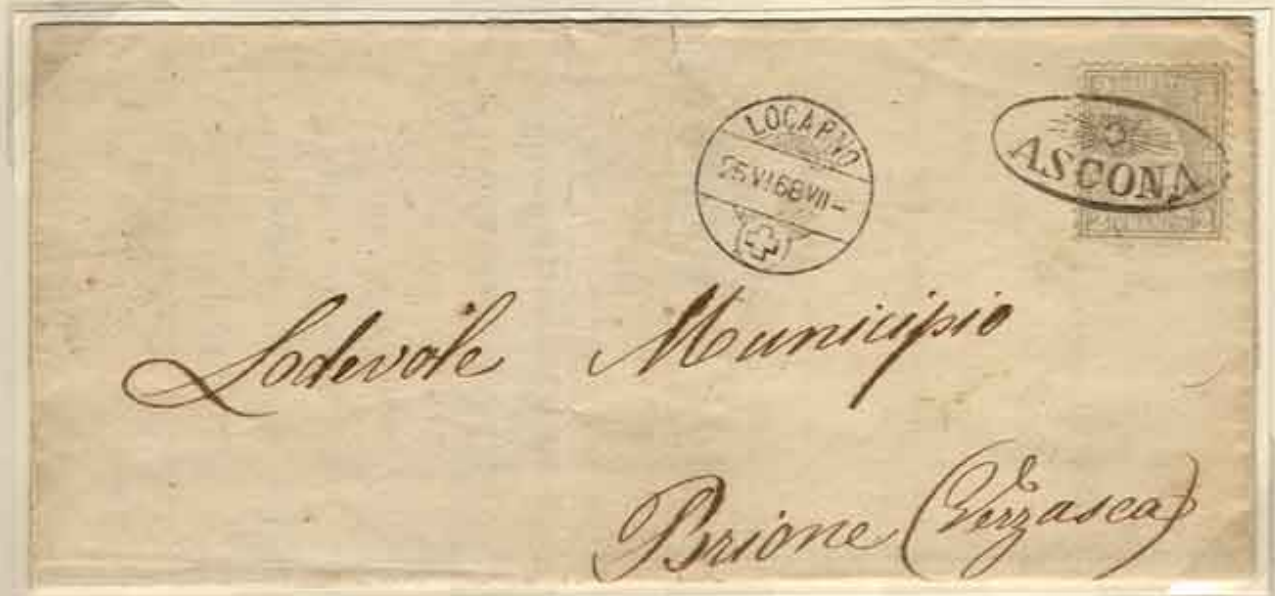 LOCARNO
25 VI 68 VII –
ASCONA
Lodevole Municipio
Brione (Verzasca)